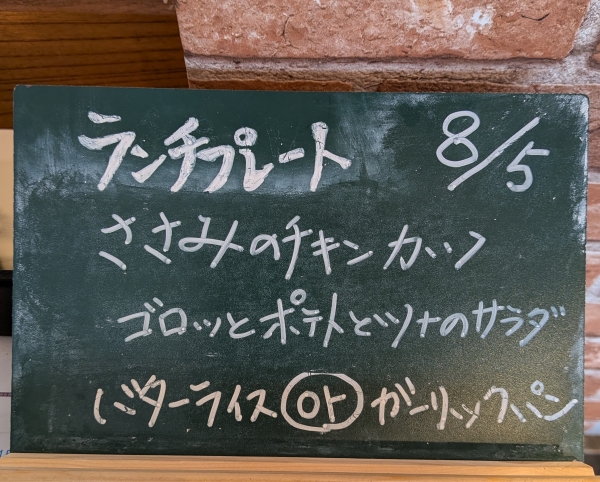 ランチプレート 8/5
ささみのチキンカツ
ゴロッとポテトとツナのサラダ
バターライス or ガーリックパン